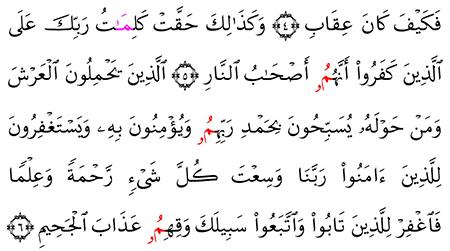 فَكَيْفَ كَانَ عِقَابِ ۝٤ وَكَذَٰلِكَ حَقَّتْ كَلِمَـٰتُ رَبِّكَ عَلَى
ٱلَّذِينَ كَفَرُوٓا۟ أَنَّهُمُۥٓ أَصْحَـٰبُ ٱلنَّارِ ۝٥ ٱلَّذِينَ يَحْمِلُونَ ٱلْعَرْشَ
وَمَنْ حَوْلَهُۥ يُسَبِّحُونَ بِحَمْدِ رَبِّهِمُۥ وَيُؤْمِنُونَ بِهِۦ وَيَسْتَغْفِرُونَ
لِلَّذِينَ ءَامَنُوا۟ رَبَّنَا وَسِعْتَ كُلَّ شَىْءٍۢ رَّحْمَةًۭ وَعِلْمًۭا
فَٱغْفِرْ لِلَّذِينَ تَابُوا۟ وَٱتَّبَعُوا۟ سَبِيلَكَ وَقِهِمُۥ عَذَابَ ٱلْجَحِيمِ ۝٦